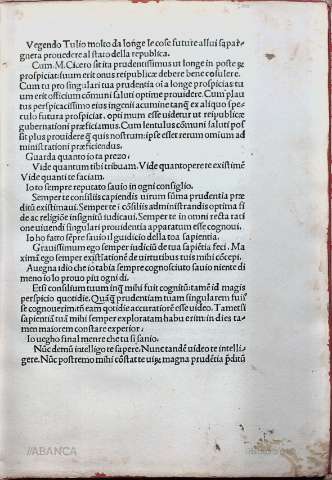 Vegendo Tulio molto da longe le cose future allui s'apar
guera prouedere al stato della republica.
Cum M. Cicero sit ita prudentissimus ut longe in posterū
prospiciat: suum erit onus reipublicæ debere bene cōsulere.
Cum tu pro singulari tua prudentia oīa longe prospicias tu
um erit officium cōmuni saluti optime prouidere. Cum plau
tus perspicacissimo eius ingenii acumine tanq̄ ex aliquo spe
culo futura prospiciat. optimum esse uidetur ut reipublicæ
gubernationi præficiamus. Cum lentulus cōmuni saluti pos
sit plus prouidere q̄ quis nostrum: ipse esset rerum omium ad
ministrationi præficiendus.
Guarda quanto io ta prezo.
Vide quantum tibi tribuam. Vide quantopere te existimē
Vide quanti te faciam.
Io to sempre reputato sauio in ogni consiglio.
Semper te consiliis capiendis uirum sūma prudentia præ
ditū existimaui. Semper te ī cōsiliis administrandis optima fi
de ac religiōe insignitū iudicaui. Semper te in omni recta rati
one uiuendi singulari prudentia apparatum esse cognoui.
Io ho fatto sēpre sauio il guidicio della toa sapientia.
Grauissimum ego semper iudiciū de tua sapiētia feci. Ma
ximā ego semper existīationē de uirtutibus tuis mihi cōcepi.
Auegna idio che io tabia sempre cognosciuto sauio niente di
meno io lo prouo piu ogni di.
Etsi consilium tuum inq̄ mihi fuit cognitū: tamē id magis
perspicio quotidie. Quāq̄ prudentiam tuam singularem fuis
se cognouerim: tñ eam qotidie accuratiorē esse uideo. Tametsi
sapientiā tuā mihi semper exploratam habuerim: in dies ta
men maiorem constare experior.
Io uegho final mente che tu si sanio.
Nūc demū intelligo te sapere. Nunc tandē uideo te intelli
gere. Nūc postremo mihi cōstat te uiꝝ magna prudētia pditū
//ABANCA